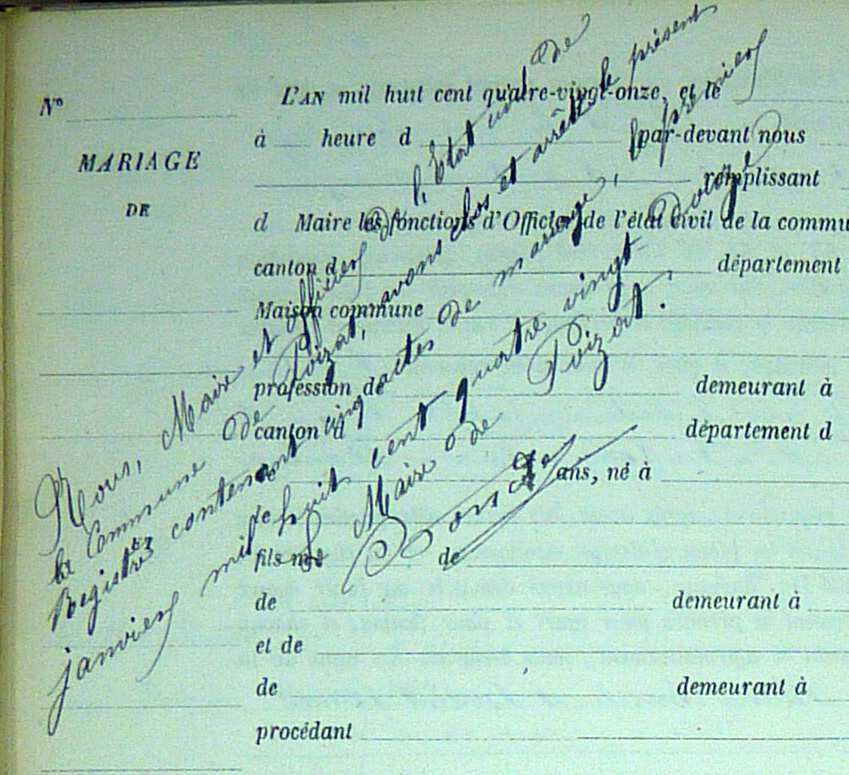 N°
MARIAGE
DE
L'AN mil huit cent quatre-vingt-onze, et le
à heure d par-devant nous
remplissant
d Maire les fonctions d'Officier de l'état civil de la commu
canton d département
Maison commune
profession de demeurant à
canton d département d
ans, né à
de
fils de
de demeurant à
et de
de demeurant à
procédant
Nous, Maire et officier de l'État civil de
la Commune de Poizat, avons clos et arrêté le présent
Registre contenant cinq actes de mariage, le premier
janvier mil huit cent quatre vingt-douze
Le Maire de Poizat.